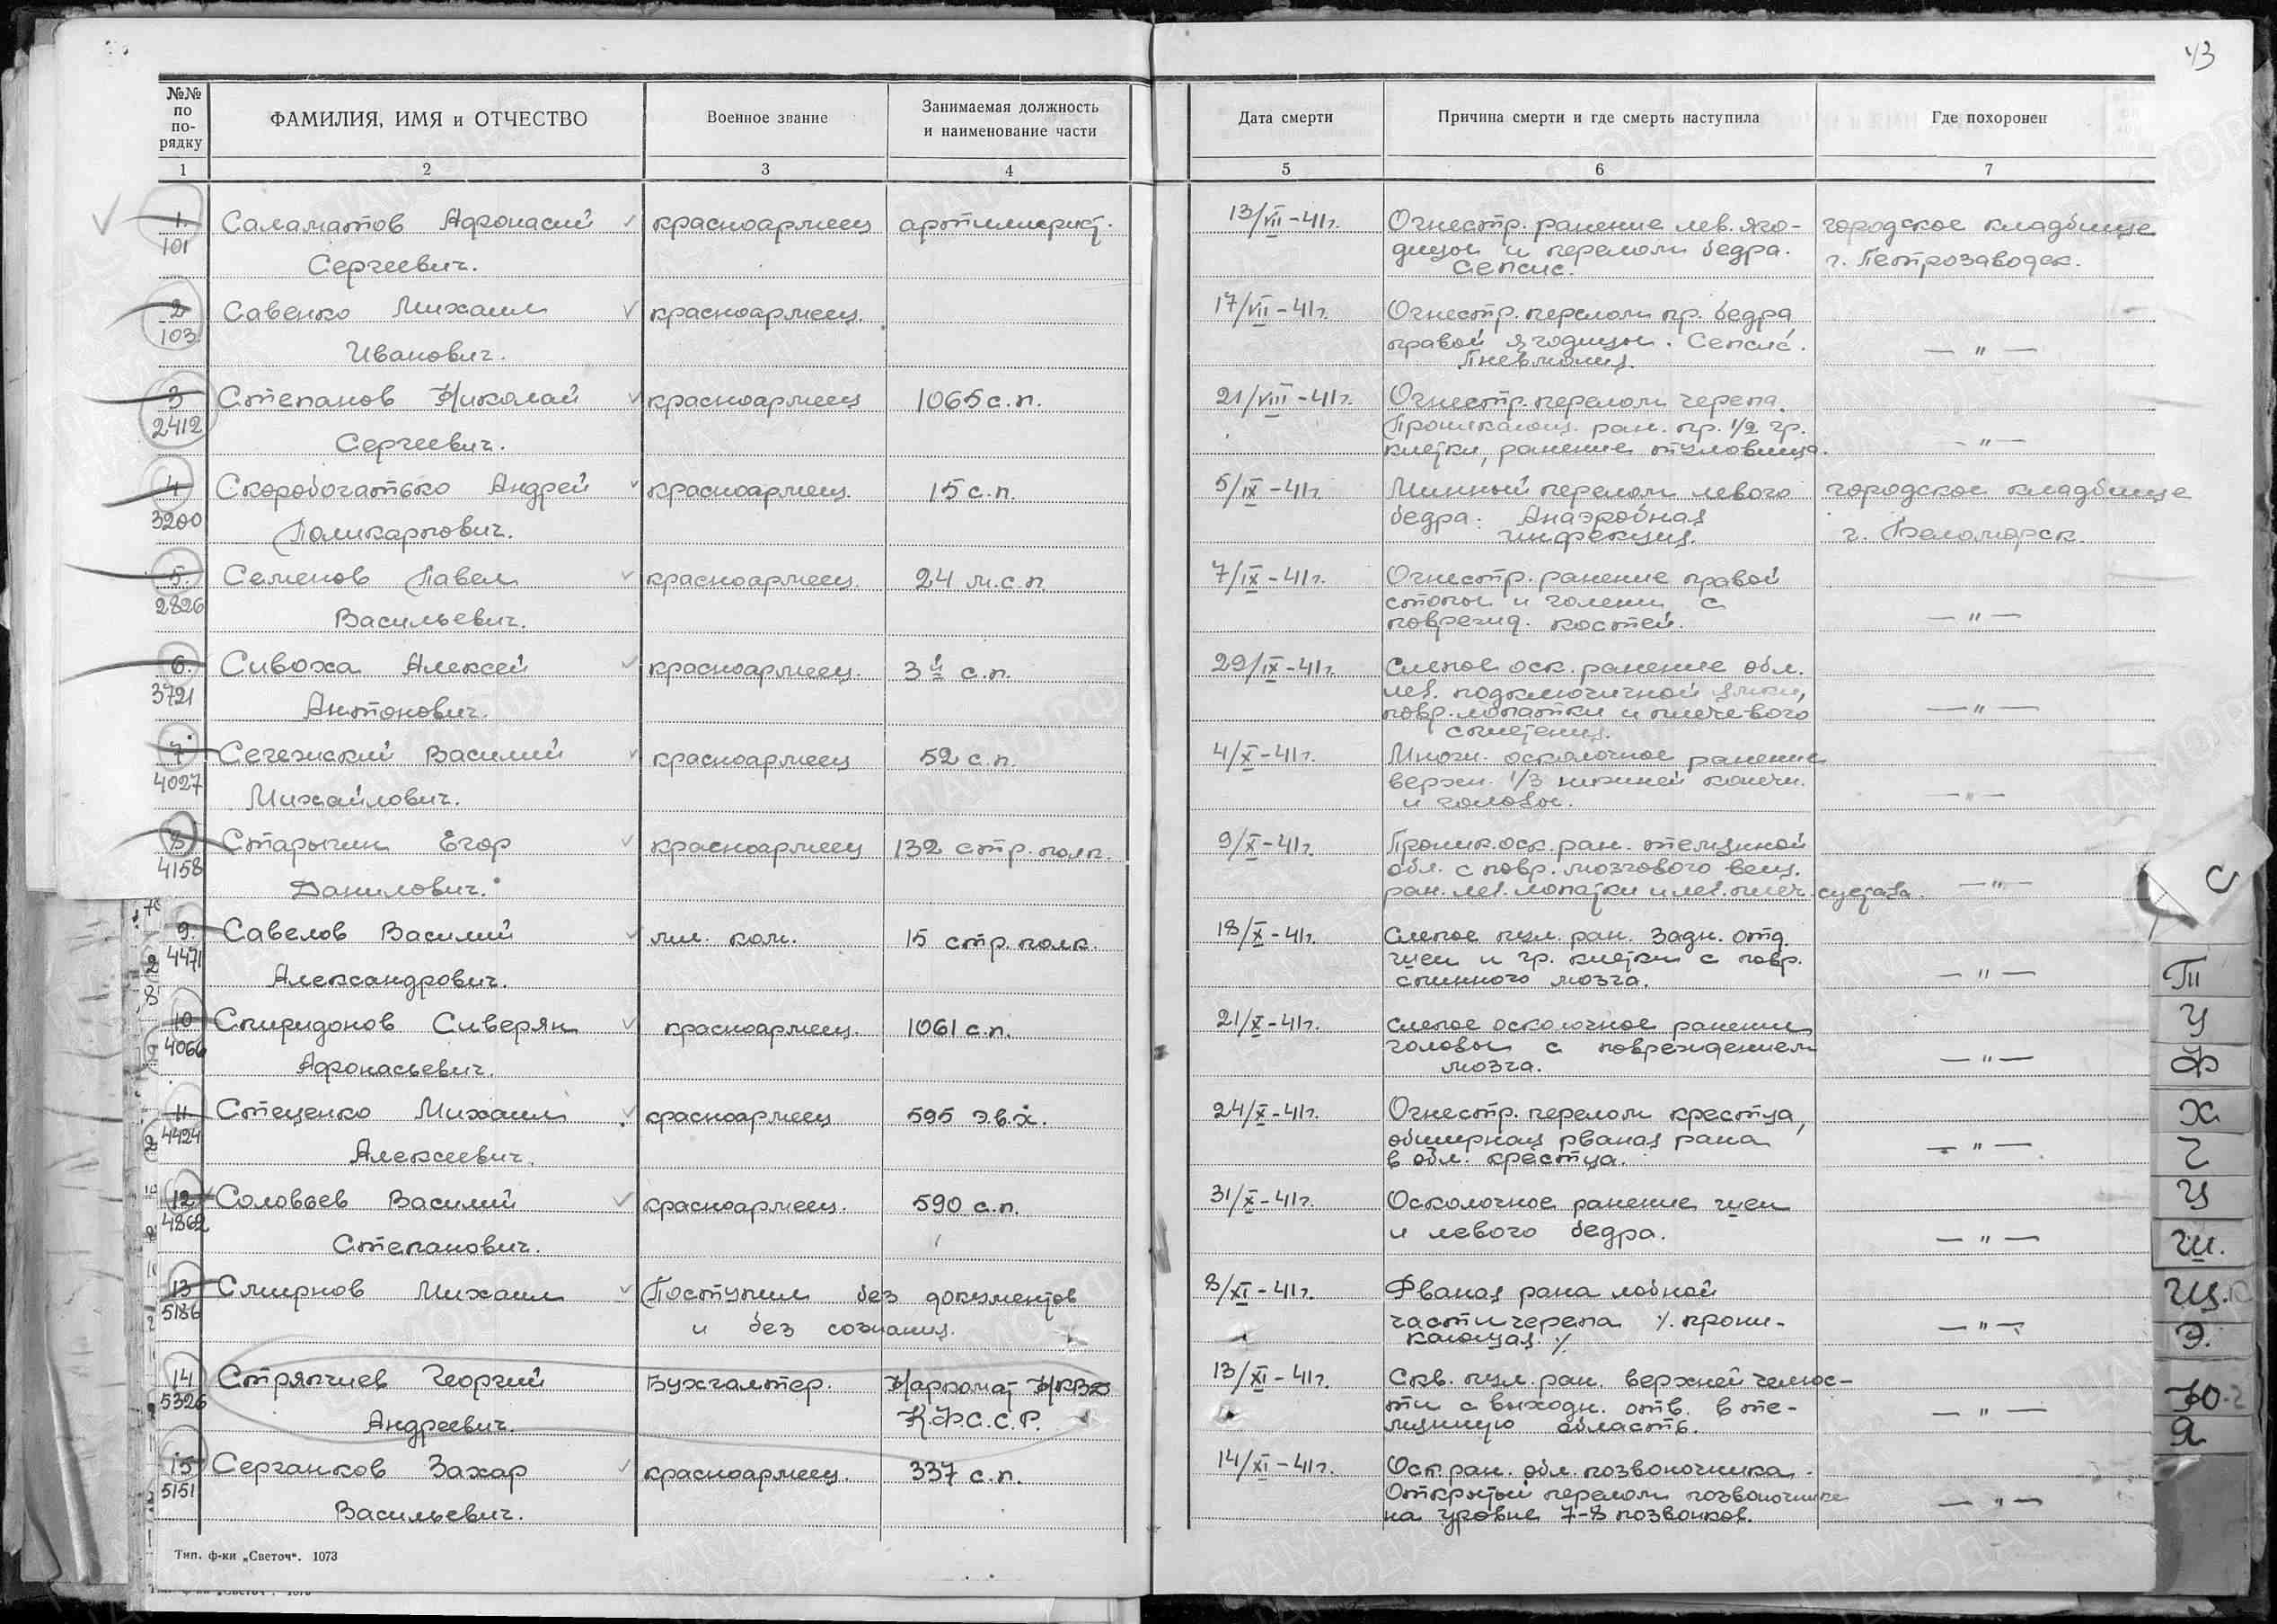 43
№№ по по-рядку
ФАМИЛИЯ, ИМЯ и ОТЧЕСТВО
Военное звание
Занимаемая должность и наименование части
Дата смерти
Причина смерти и где смерть наступила
Где похоронен
1 2 3 4 5 6 7
1. Саламатов Афонасий красноармеец артиллерист. 13/VII-41г. Огнестр. ранение лев. яго- городское кладбище
101 Сергеевич. дицы и перелом бедра. г. Петрозаводск.
Сепсис.
2 Савенко Михаил красноармеец. 17/VII-41г. Огнестр. перелом пр. бедра
103 Иванович. правой ягодицы. Сепсис. — " —
Пневмония.
3 Степанов Николай красноармеец 1065 с.п. 21/VIII-41г. Огнестр. перелом черепа.
2412 Проникающ. ран. пр. 1/2 гр.
Сергеевич. клетки, ранение туловища. — " —
4 Скоробогатько Андрей красноармеец. 15 с.п. 5/IX-41г. Минный перелом левого городское кладбище
3200 Поликарпович. бедра: Анаэробная г. Беломорск.
инфекция.
5. Семенов Павел красноармеец. 24 м.с.п. 7/IX-41г. Огнестр. ранение правой
2826 стопы и голени с
Васильевич. поврежд. костей. — " —
6. Сивоха Алексей красноармеец. 3й с.п. 29/IX-41г. Слепое оск. ранение обл.
3721 лев. подключичной ямки,
Антонович. повр. лопатки и плечевого — " —
сочленения.
7 Сечежский Василий красноармеец 52 с.п. 4/X-41г. Множ. осколочное ранение
4027 верхн. 1/3 нижней конечн.
Михайлович. и головы. — " —
8 Старыгин Егор красноармеец 132 стр. полк. 9/X-41г. Проник. оск. ран. теменной
4158 обл. с повр. мозгового вещ.
Данилович. ран. лев. лопатки и лев. плеч. сустава. — " —
9. Савелов Василий мл. ком. 15 стр. полк. 18/X-41г. Слепое пул. ран. задн. отд.
4471 шеи и гр. клетки с повр.
Александрович. спинного мозга. — " —
10 Спиридонов Сиверян красноармеец. 1061 с.п. 21/X-41г. слепое осколочное ранение
4066 головы с повреждением
Афонасьевич. мозга. — " —
11 Стеценко Михаил красноармеец 595 э.в.х. 24/X-41г. Огнестр. перелом крестца,
4424 обширная рваная рана
Алексеевич. в обл. крестца. — " —
12 Соловьев Василий красноармеец. 590 с.п. 31/X-41г. Осколочное ранение шеи
4862 Степанович. и левого бедра. — " —
13 Смирнов Михаил Поступил без документов 8/XI-41г. Рваная рана лобной
5186 и без сознания. части черепа /. прони- — " —
кающая ./
14 Стряпчев Георгий Бухгалтер. Наркомат НКВД 13/XI-41г. Скв. пул. ран. верхней челюс-
5326 К.Ф.С.С.Р. ти с выходн. отв. в те-
Андреевич. менную область. — " —
15 Серганков Захар красноармеец. 337 с.п. 14/XI-41г. Оск. ран. обл. позвоночника.
5151 Открытый перелом позвоночника
Васильевич. на уровне 7-8 позвонков. — " —
Тип. ф-ки „Светоч". 1073
С
Т
У
Ф
Х
Ч
Ц
Ш.
Щ.
Э.
Ю
Я